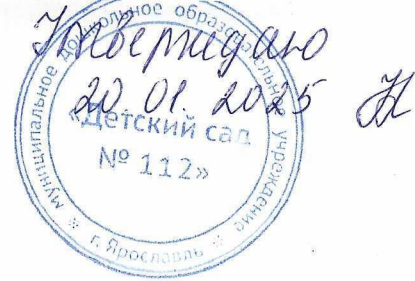 Утверждаю
20.01.2025
муниципальное дошкольное образовательное учреждение
«Детский сад
№ 112»
г. Ярославль